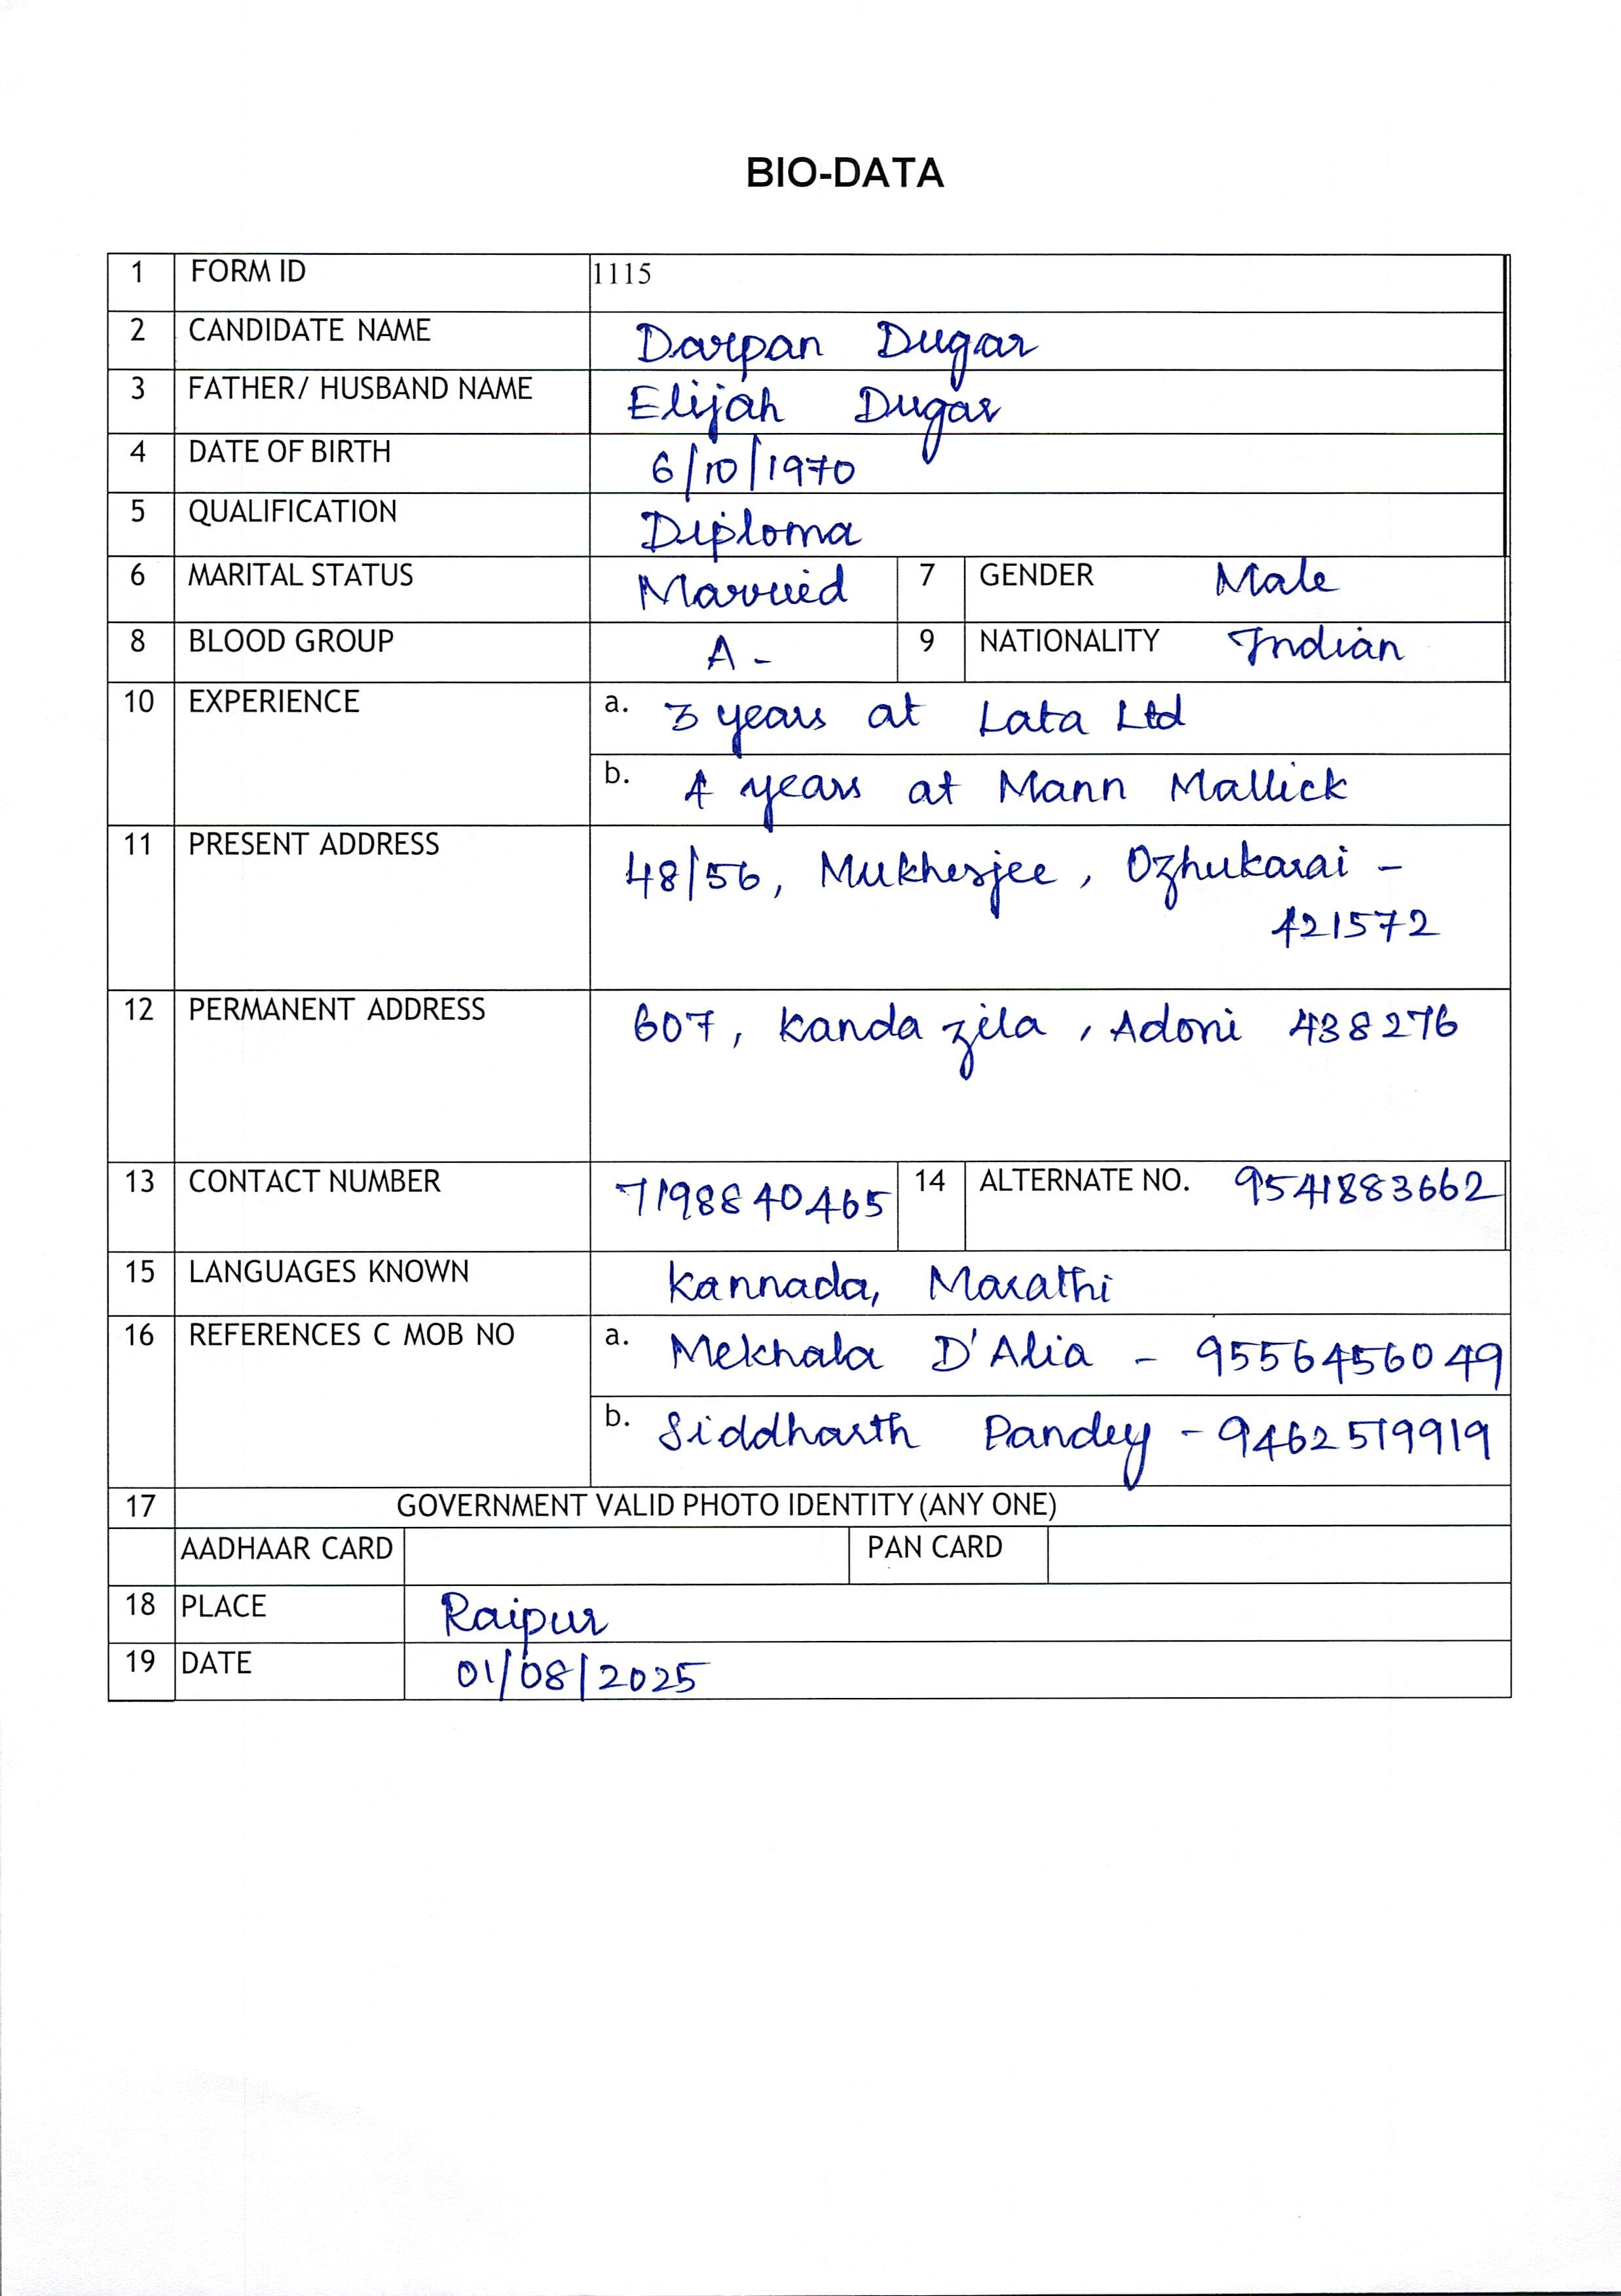 BIO-DATA
1 FORM ID 1115
2 CANDIDATE NAME Darpan Dugar
3 FATHER/ HUSBAND NAME Elijah Dugar
4 DATE OF BIRTH 6/10/1970
5 QUALIFICATION Diploma
6 MARITAL STATUS Married 7 GENDER Male
8 BLOOD GROUP A - 9 NATIONALITY Indian
10 EXPERIENCE a. 3 years at Lata Ltd
b. 4 years at Mann Mallick
11 PRESENT ADDRESS 48/56, Mukherjee, Ozhukarai -
421572
12 PERMANENT ADDRESS 607, Kanda zila, Adoni 438276
13 CONTACT NUMBER 7198840465 14 ALTERNATE NO. 9541883662
15 LANGUAGES KNOWN Kannada, Marathi
16 REFERENCES C MOB NO a. Mekhala D'Alia - 9556456049
b. Siddharth Pandey - 9462519919
17 GOVERNMENT VALID PHOTO IDENTITY (ANY ONE)
AADHAAR CARD PAN CARD
18 PLACE Raipur
19 DATE 01/08/2025